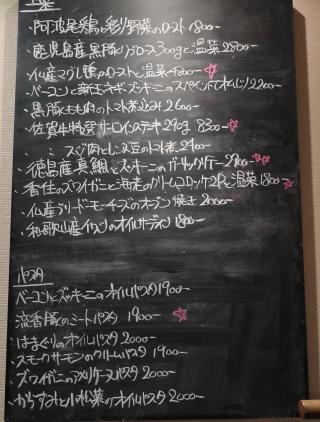 ・阿波尾鶏と彩り野菜のロースト 1800-
・鹿児島産黒豚肩ロース300gと温菜 2800-
・仏産マグレ鴨のローストと温菜 4200- ☆
・ベーコンと新玉ネギ、ズッキーニのスペイン風オムレツ 2200-
・黒豚もも肉のトマト煮込み 2600-
・佐賀牛特選サーロインステーキ 290g 8300- ☆
・〃 スジ肉とレンズ豆のトマト煮 2400-
・徳島産真鯛とズッキーニのガーリックソテー 2900- ☆
・香住のズワイガニと海老のクリームコロッケ2Pと温菜 1800- ☆
・仏産ブリードモーチーズのオーブン焼き 2000-
・和歌山産イワシとオイルサーディン 1800-
パスタ
・ベーコンとズッキーニのオイルパスタ 1900-
・流香豚のミートパスタ 1900- ☆
・はまぐりのオイルパスタ 2000-
・スモークサーモンのクリームパスタ 1900-
・ズワイガニのアメリケーヌパスタ 2000-
・からすみと小松菜のオイルパスタ 2000-